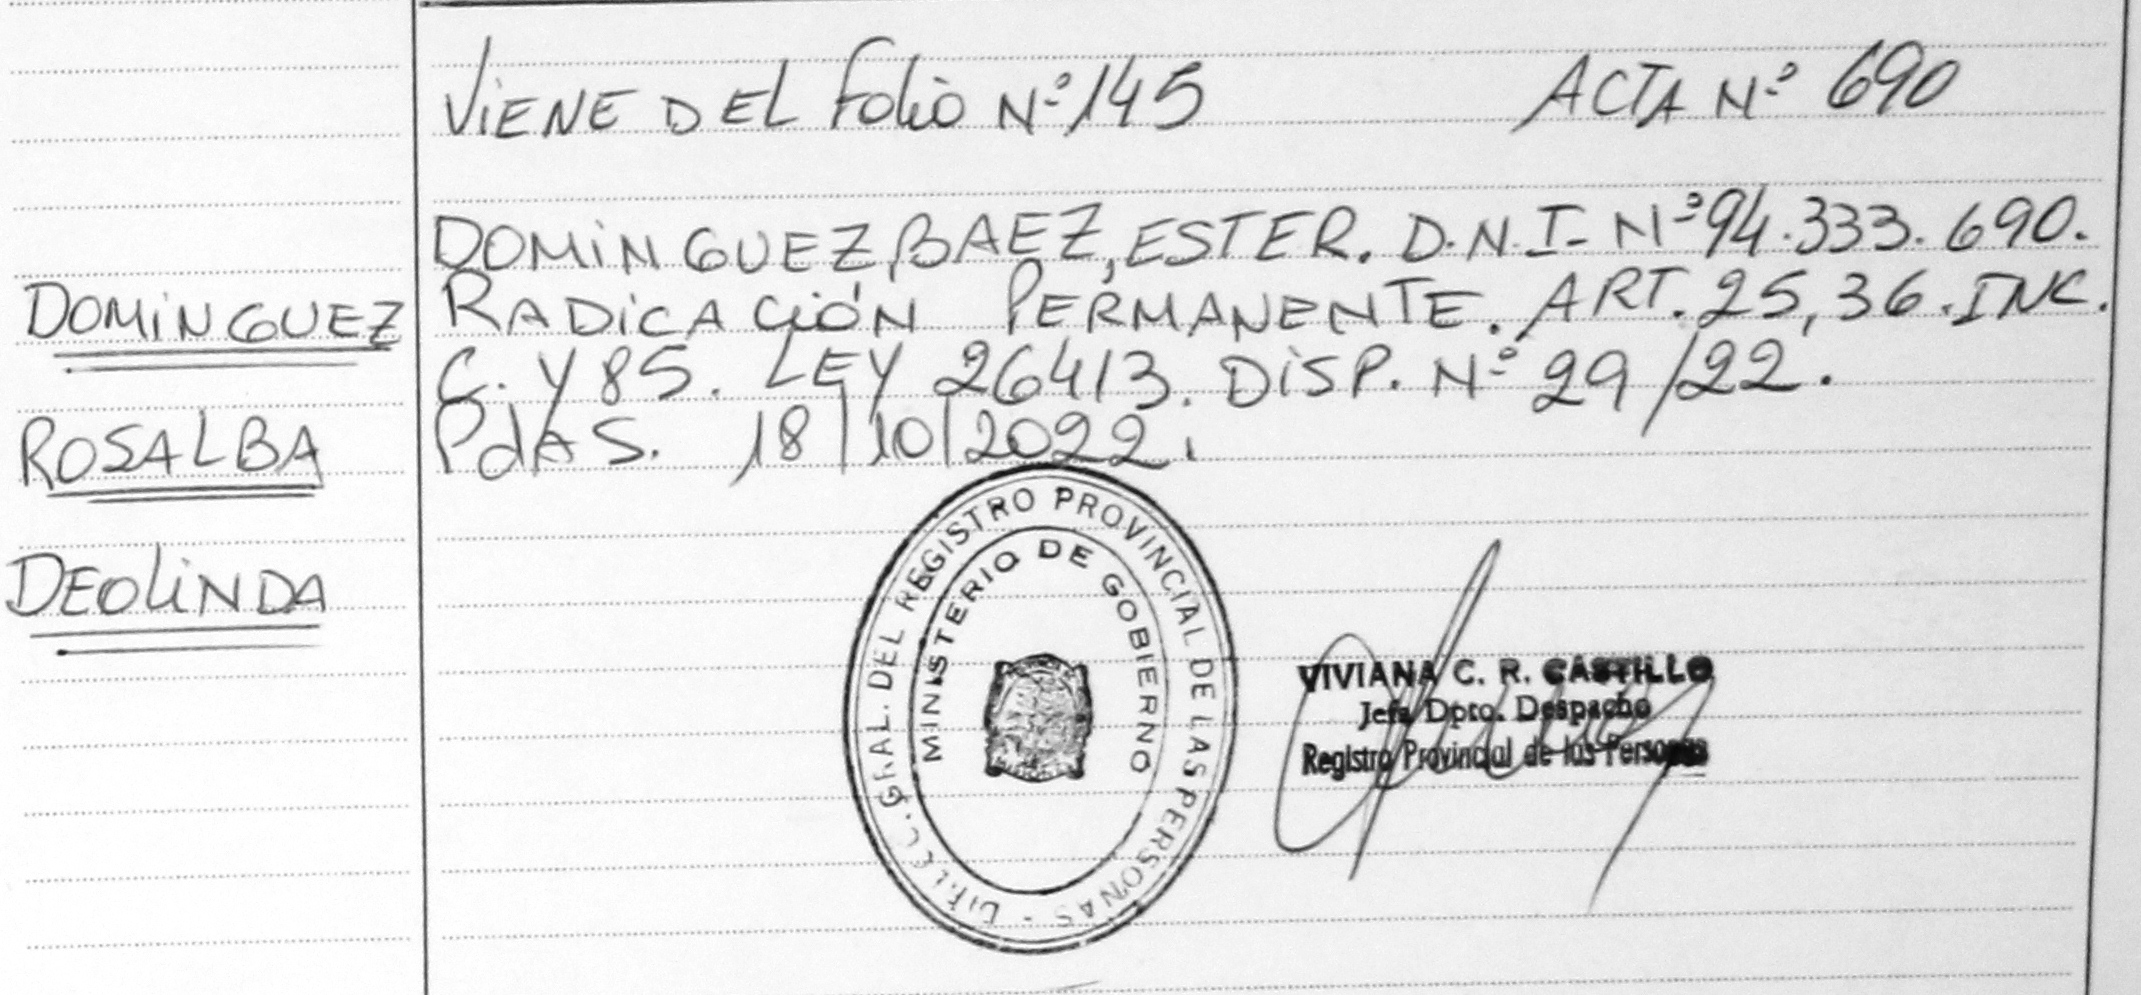 VIENE DEL Folio Nº 145 ACTA Nº 690
DOMINGUEZ BAEZ, ESTER. D.N.I- Nº 94.333.690.
RADICACIÓN PERMANENTE. ART. 25, 36. INC.
C. Y 85. LEY 26413. DISP. Nº 29/22.
PdAS. 18/10/2022.
DOMINGUEZ
ROSALBA
DEOLINDA
GRAL. DEL REGISTRO PROVINCIAL DE LAS PERSONAS
MINISTERIO DE GOBIERNO
VIVIANA C. R. CASTILLO
Jefa Dpto. Despacho
Registro Provincial de las Personas